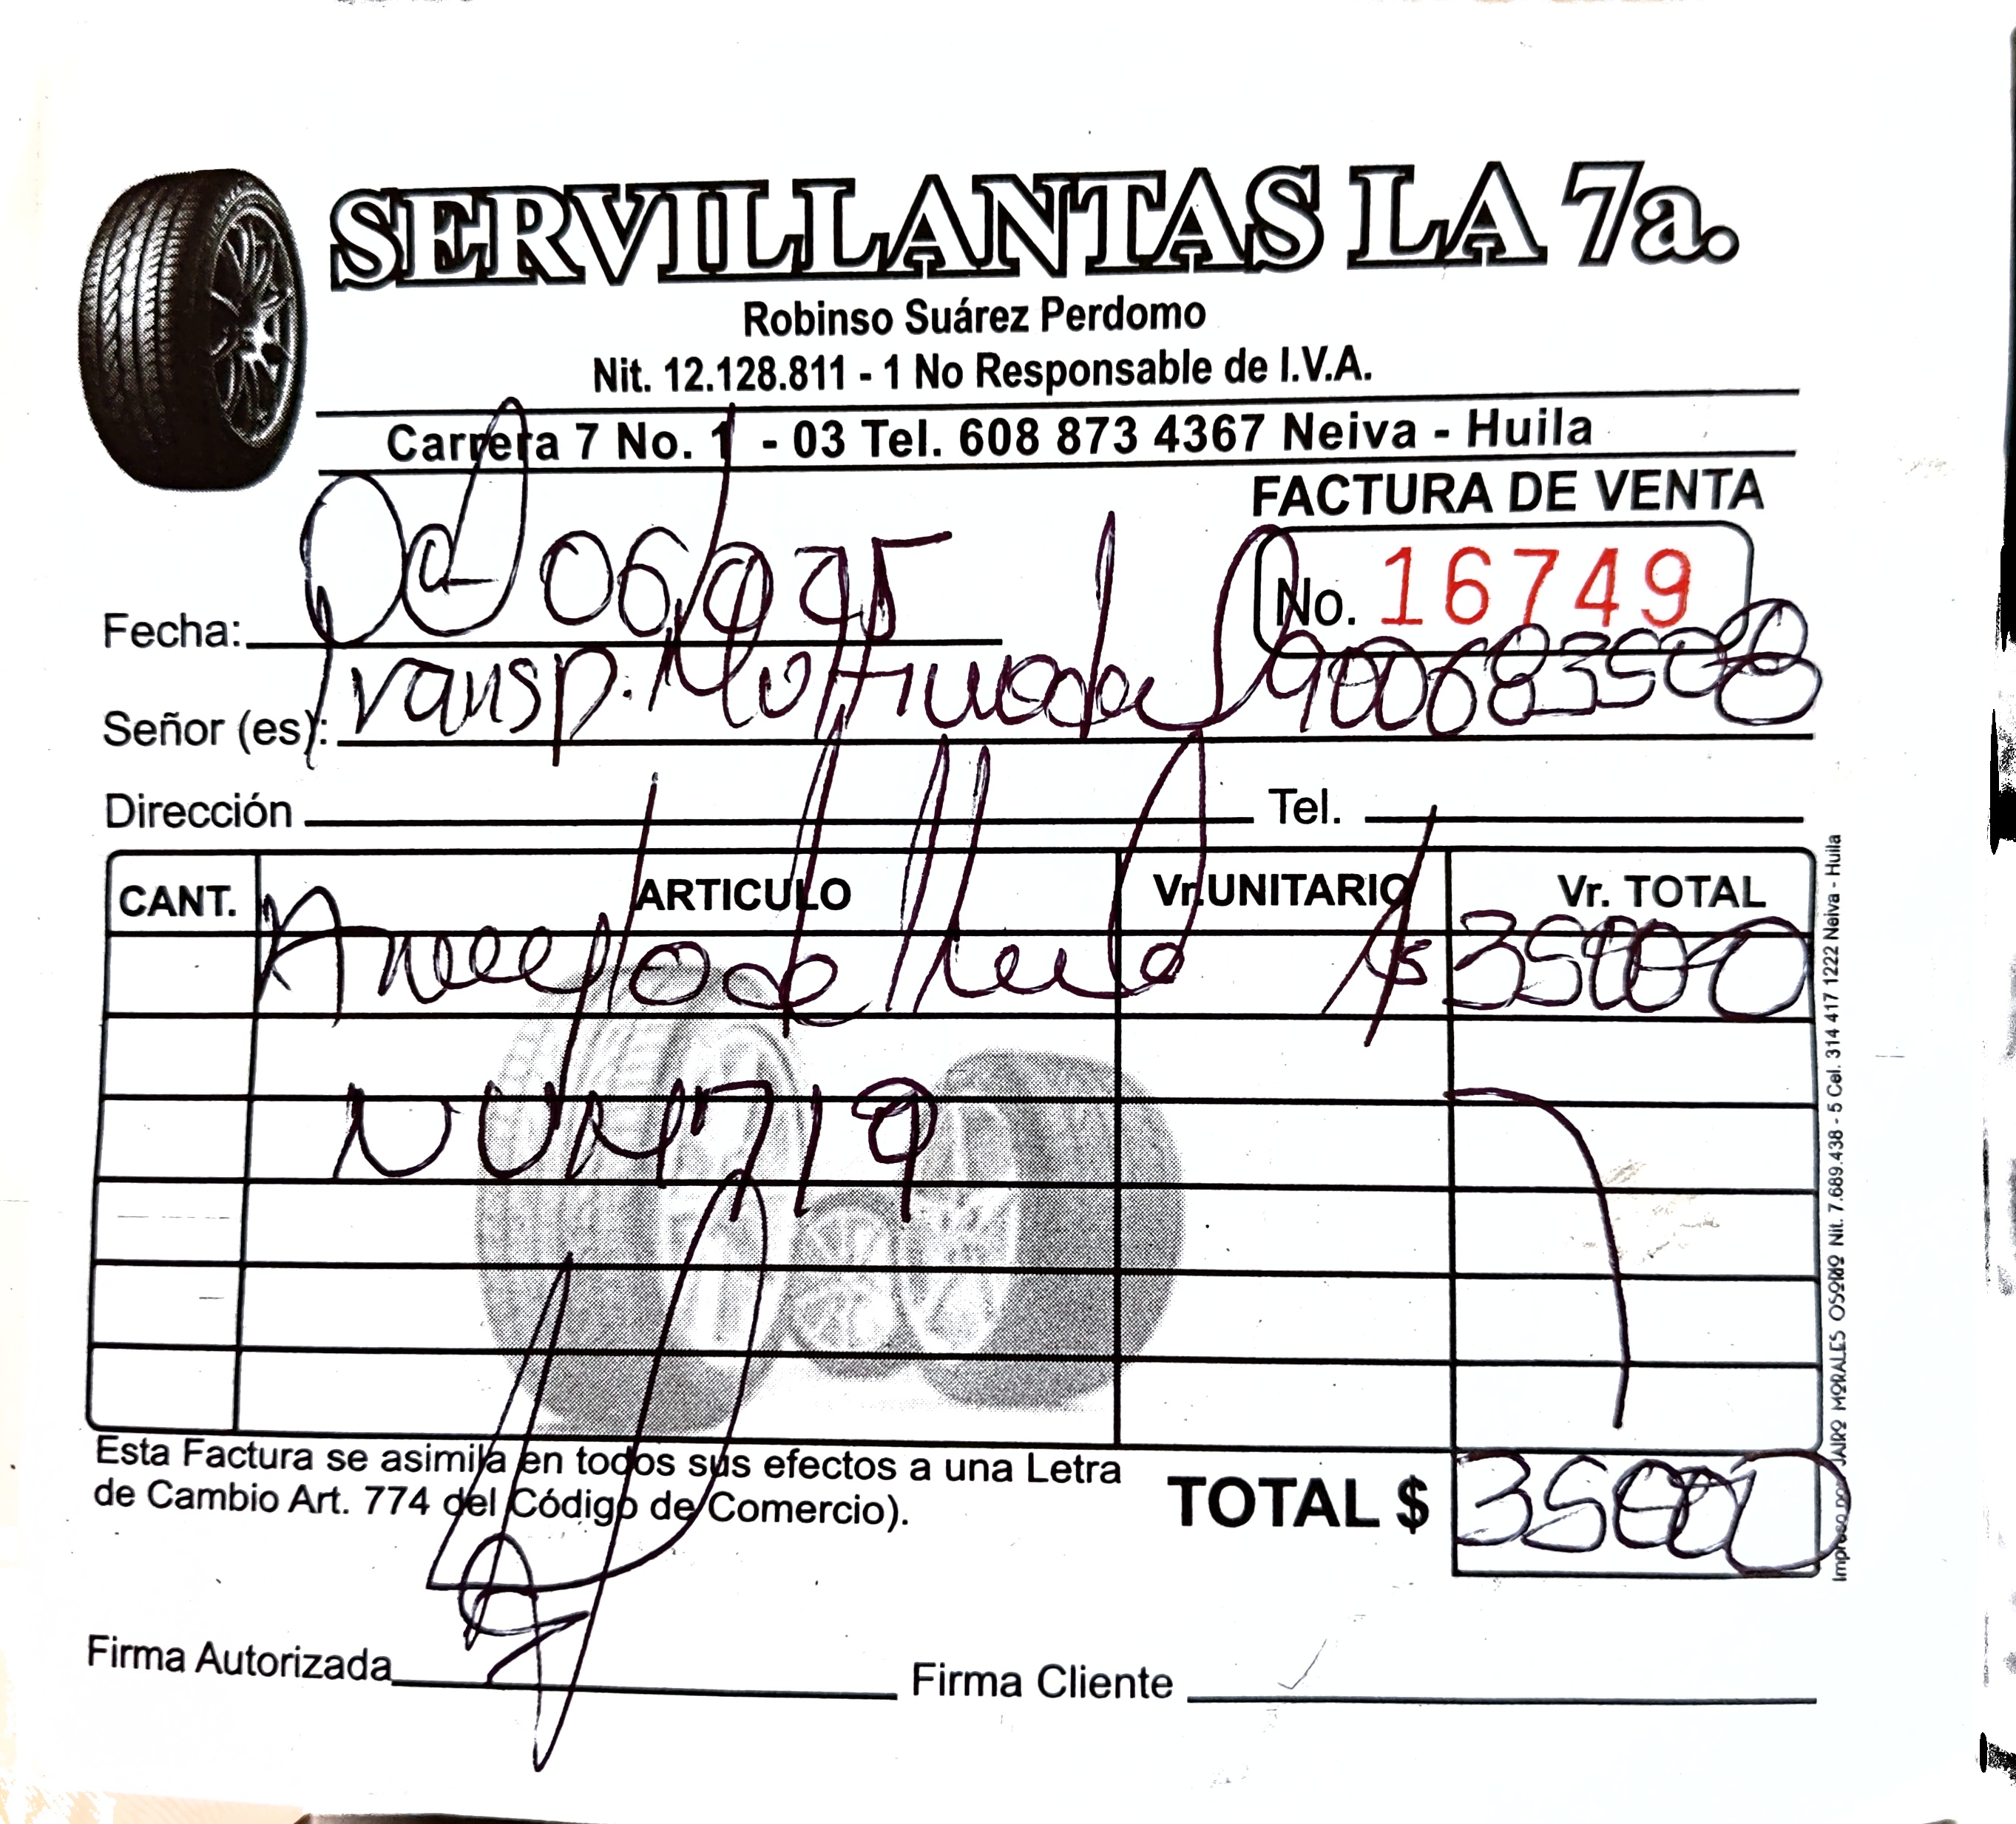 SERVILLANTAS LA 7a.
Robinso Suárez Perdomo
Nit. 12.128.811 - 1 No Responsable de I.V.A.
Carrera 7 No. 1 - 03 Tel. 608 873 4367 Neiva - Huila
FACTURA DE VENTA
No. 16749
Fecha: Oct 06/
Señor (es): Transp. 900683508
Dirección Tel.
CANT. ARTICULO Vr.UNITARIO Vr. TOTAL
Arreglo de llanta $ 35000
NUM719
Esta Factura se asimila en todos sus efectos a una Letra
de Cambio Art. 774 del Código de Comercio).
TOTAL $ 35000
Firma Autorizada Firma Cliente
Impreso por JAIRO MORALES OSORIO Nit. 7.689.438 - 5 Cel. 314 417 1222 Neiva - Huila